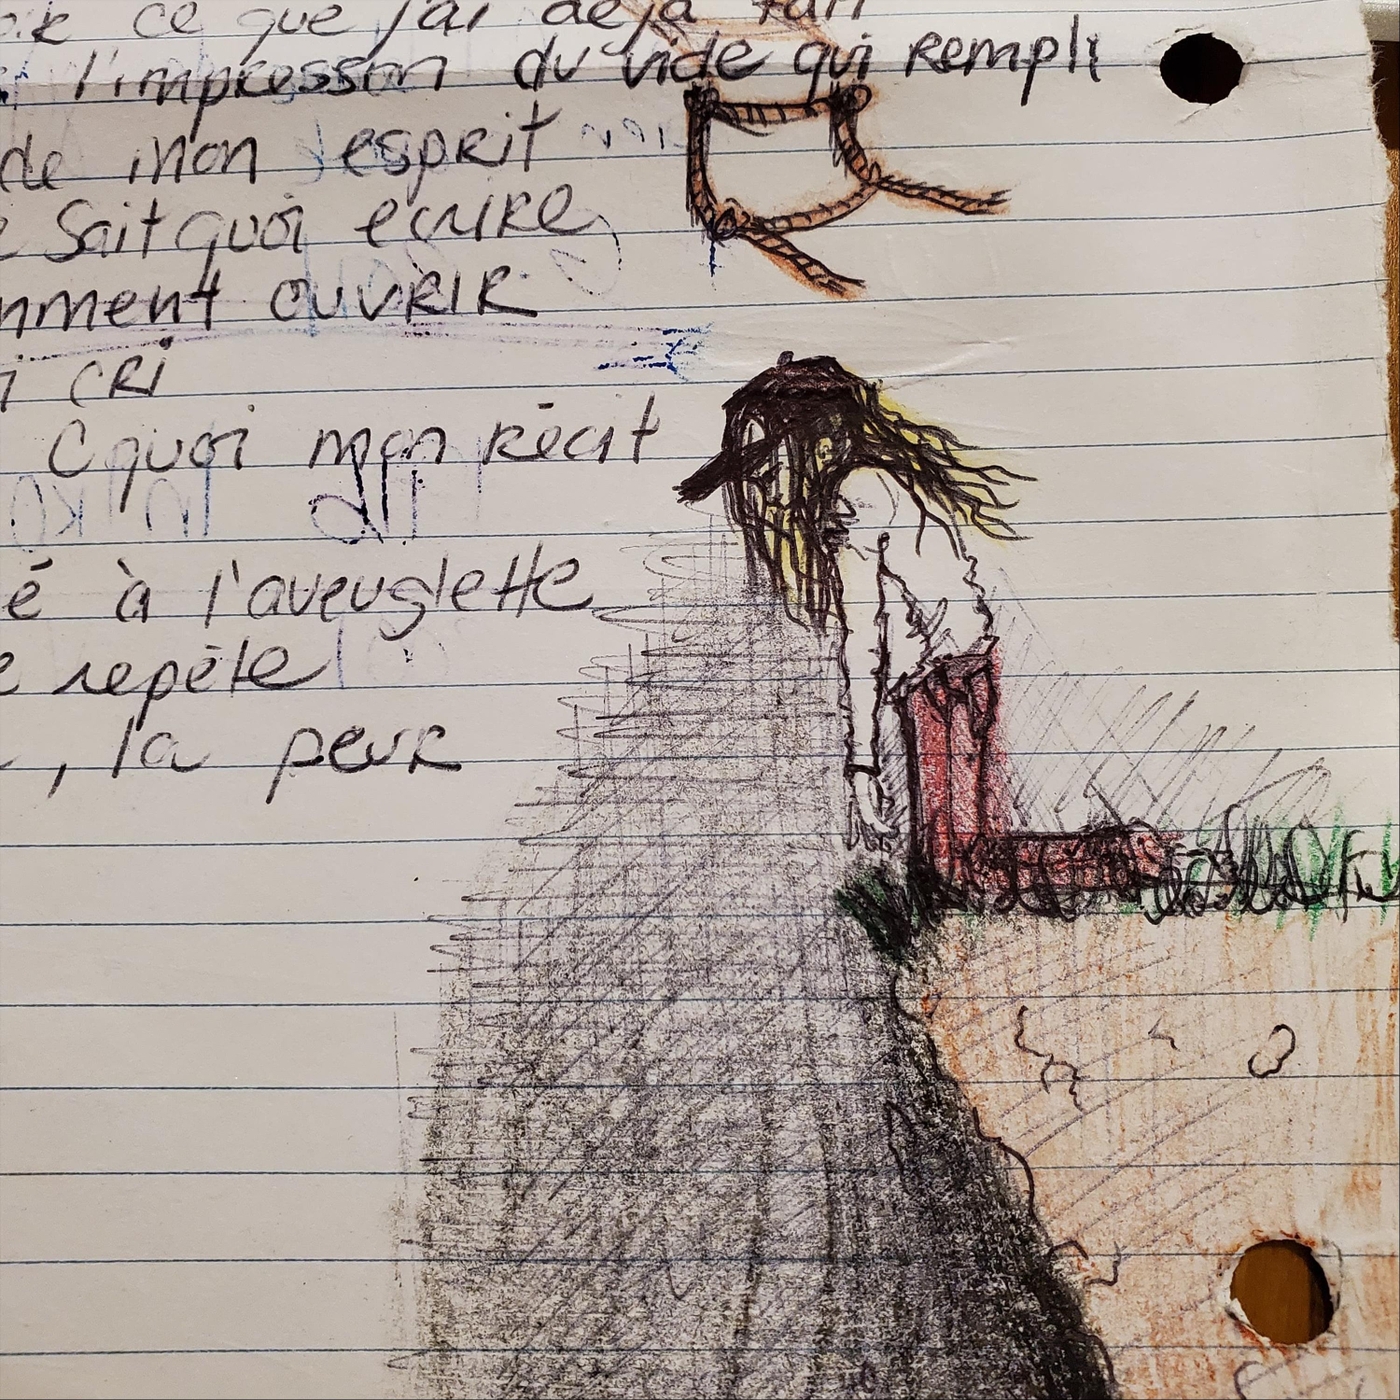 ce que j'ai déjà fait
l'impression du vide qui rempli
de mon esprit
sait quoi ecrire
mment ouvrir
cri
C quoi mon récit
é à l'aveuglette
repète
, la peur